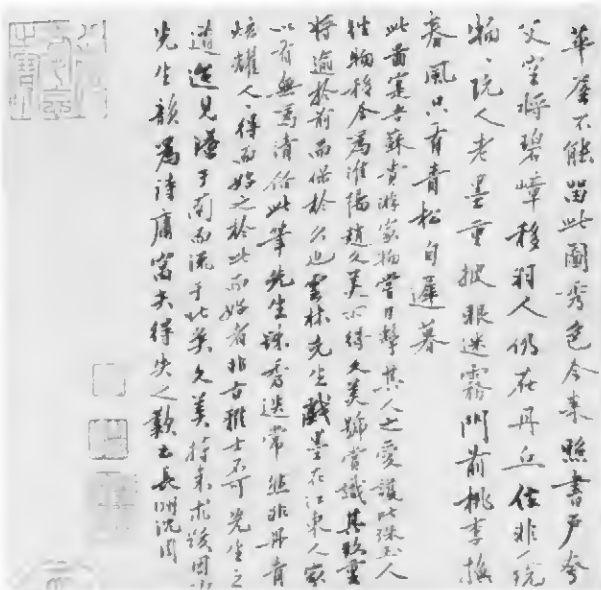 華屋不能留此圖秀色今來照書戶
父空將碧嶂移羽人仍在丹丘住非
翁玩人老墨重披眼迷霧門前桃李換
春風只有青松自遲暮
此畫寔吾蘇貴游家物嘗日擊其人之愛護如珠玉人
物移今為淮陽趙文美所得文美號賞識其歆重
將逾於前而保於久也雲林先生戲墨在江東人家
以有無為清俗此筆先生疎秀逸常然非丹青
炫耀人得而好之於此而好者非古雅士不可先生之
見僅于南而流于北矣文美持來求跋因
先生韻為詩庸寓夫得失之歎云長洲沈周